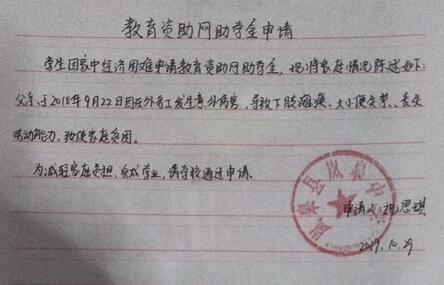 教育资助网助学金申请
学生因家中经济困难申请教育资助网助学金，现将家庭情况陈述如下：
父亲于2018年9月22日因在外务工发生意外伤害，导致下肢瘫痪、大小便失禁、丧失
劳动能力，致使家庭贫困。
为减轻家庭负担，完成学业，请学校通过申请。
岚皋县岚皋中
申请人：思琪
2019.10.29